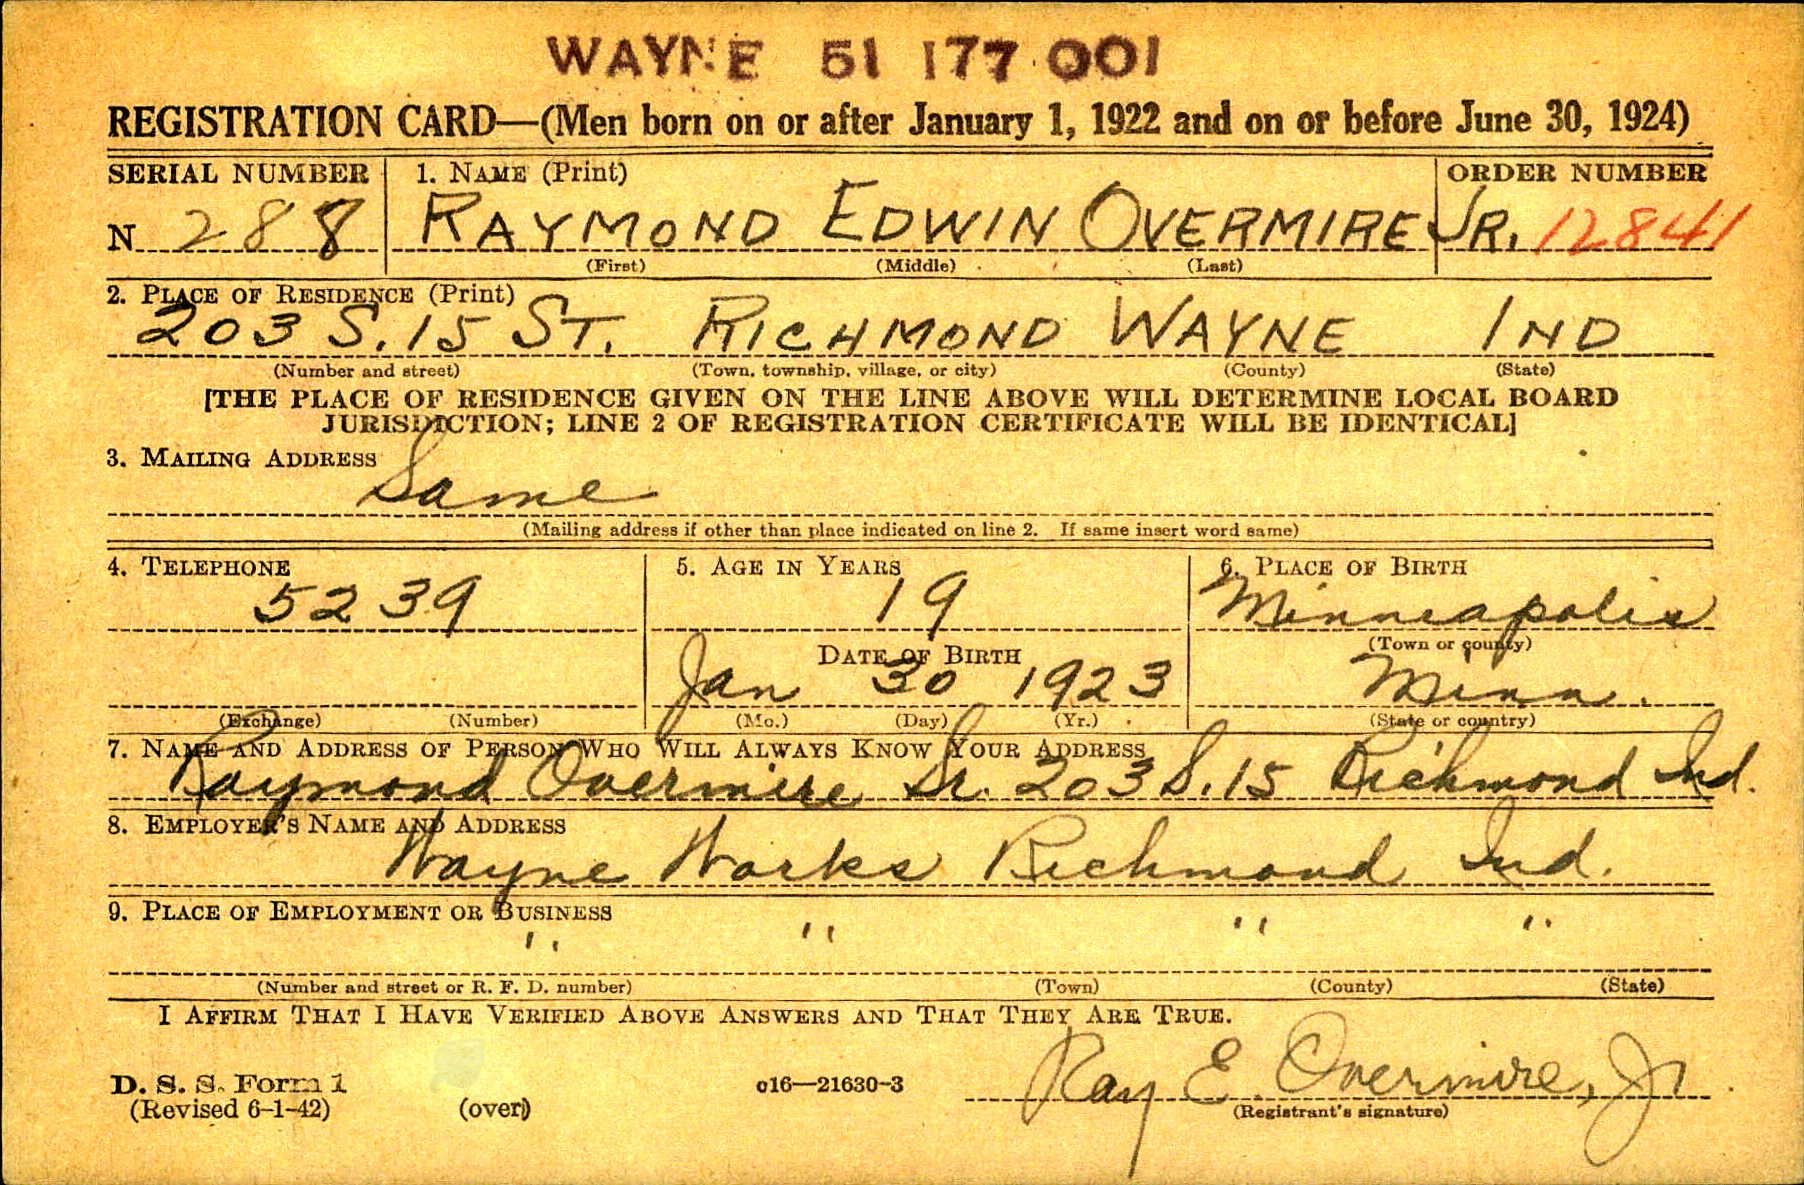 WAYNE 51 177 001
REGISTRATION CARD—(Men born on or after January 1, 1922 and on or before June 30, 1924)
SERIAL NUMBER 1. NAME (Print) ORDER NUMBER
N 288 RAYMOND EDWIN OVERMIRE JR. 12841
(First) (Middle) (Last)
2. PLACE OF RESIDENCE (Print)
203 S. 15 ST. RICHMOND WAYNE IND
(Number and street) (Town, township, village, or city) (County) (State)
[THE PLACE OF RESIDENCE GIVEN ON THE LINE ABOVE WILL DETERMINE LOCAL BOARD
JURISDICTION; LINE 2 OF REGISTRATION CERTIFICATE WILL BE IDENTICAL]
3. MAILING ADDRESS
Same
(Mailing address if other than place indicated on line 2. If same insert word same)
4. TELEPHONE 5. AGE IN YEARS 6. PLACE OF BIRTH
5239 19 Minneapolis
DATE OF BIRTH (Town or county)
Jan 30 1923 Minn.
(Exchange) (Number) (Mo.) (Day) (Yr.) (State or country)
7. NAME AND ADDRESS OF PERSON WHO WILL ALWAYS KNOW YOUR ADDRESS
Raymond Overmire Sr. 203 S. 15 Richmond Ind.
8. EMPLOYER'S NAME AND ADDRESS
Wayne Works Richmond Ind.
9. PLACE OF EMPLOYMENT OR BUSINESS
" " " "
(Number and street or R. F. D. number) (Town) (County) (State)
I AFFIRM THAT I HAVE VERIFIED ABOVE ANSWERS AND THAT THEY ARE TRUE.
D. S. S. Form 1 c16—21630-3 Ray E. Overmire, Jr
(Revised 6-1-42) (over) (Registrant's signature)